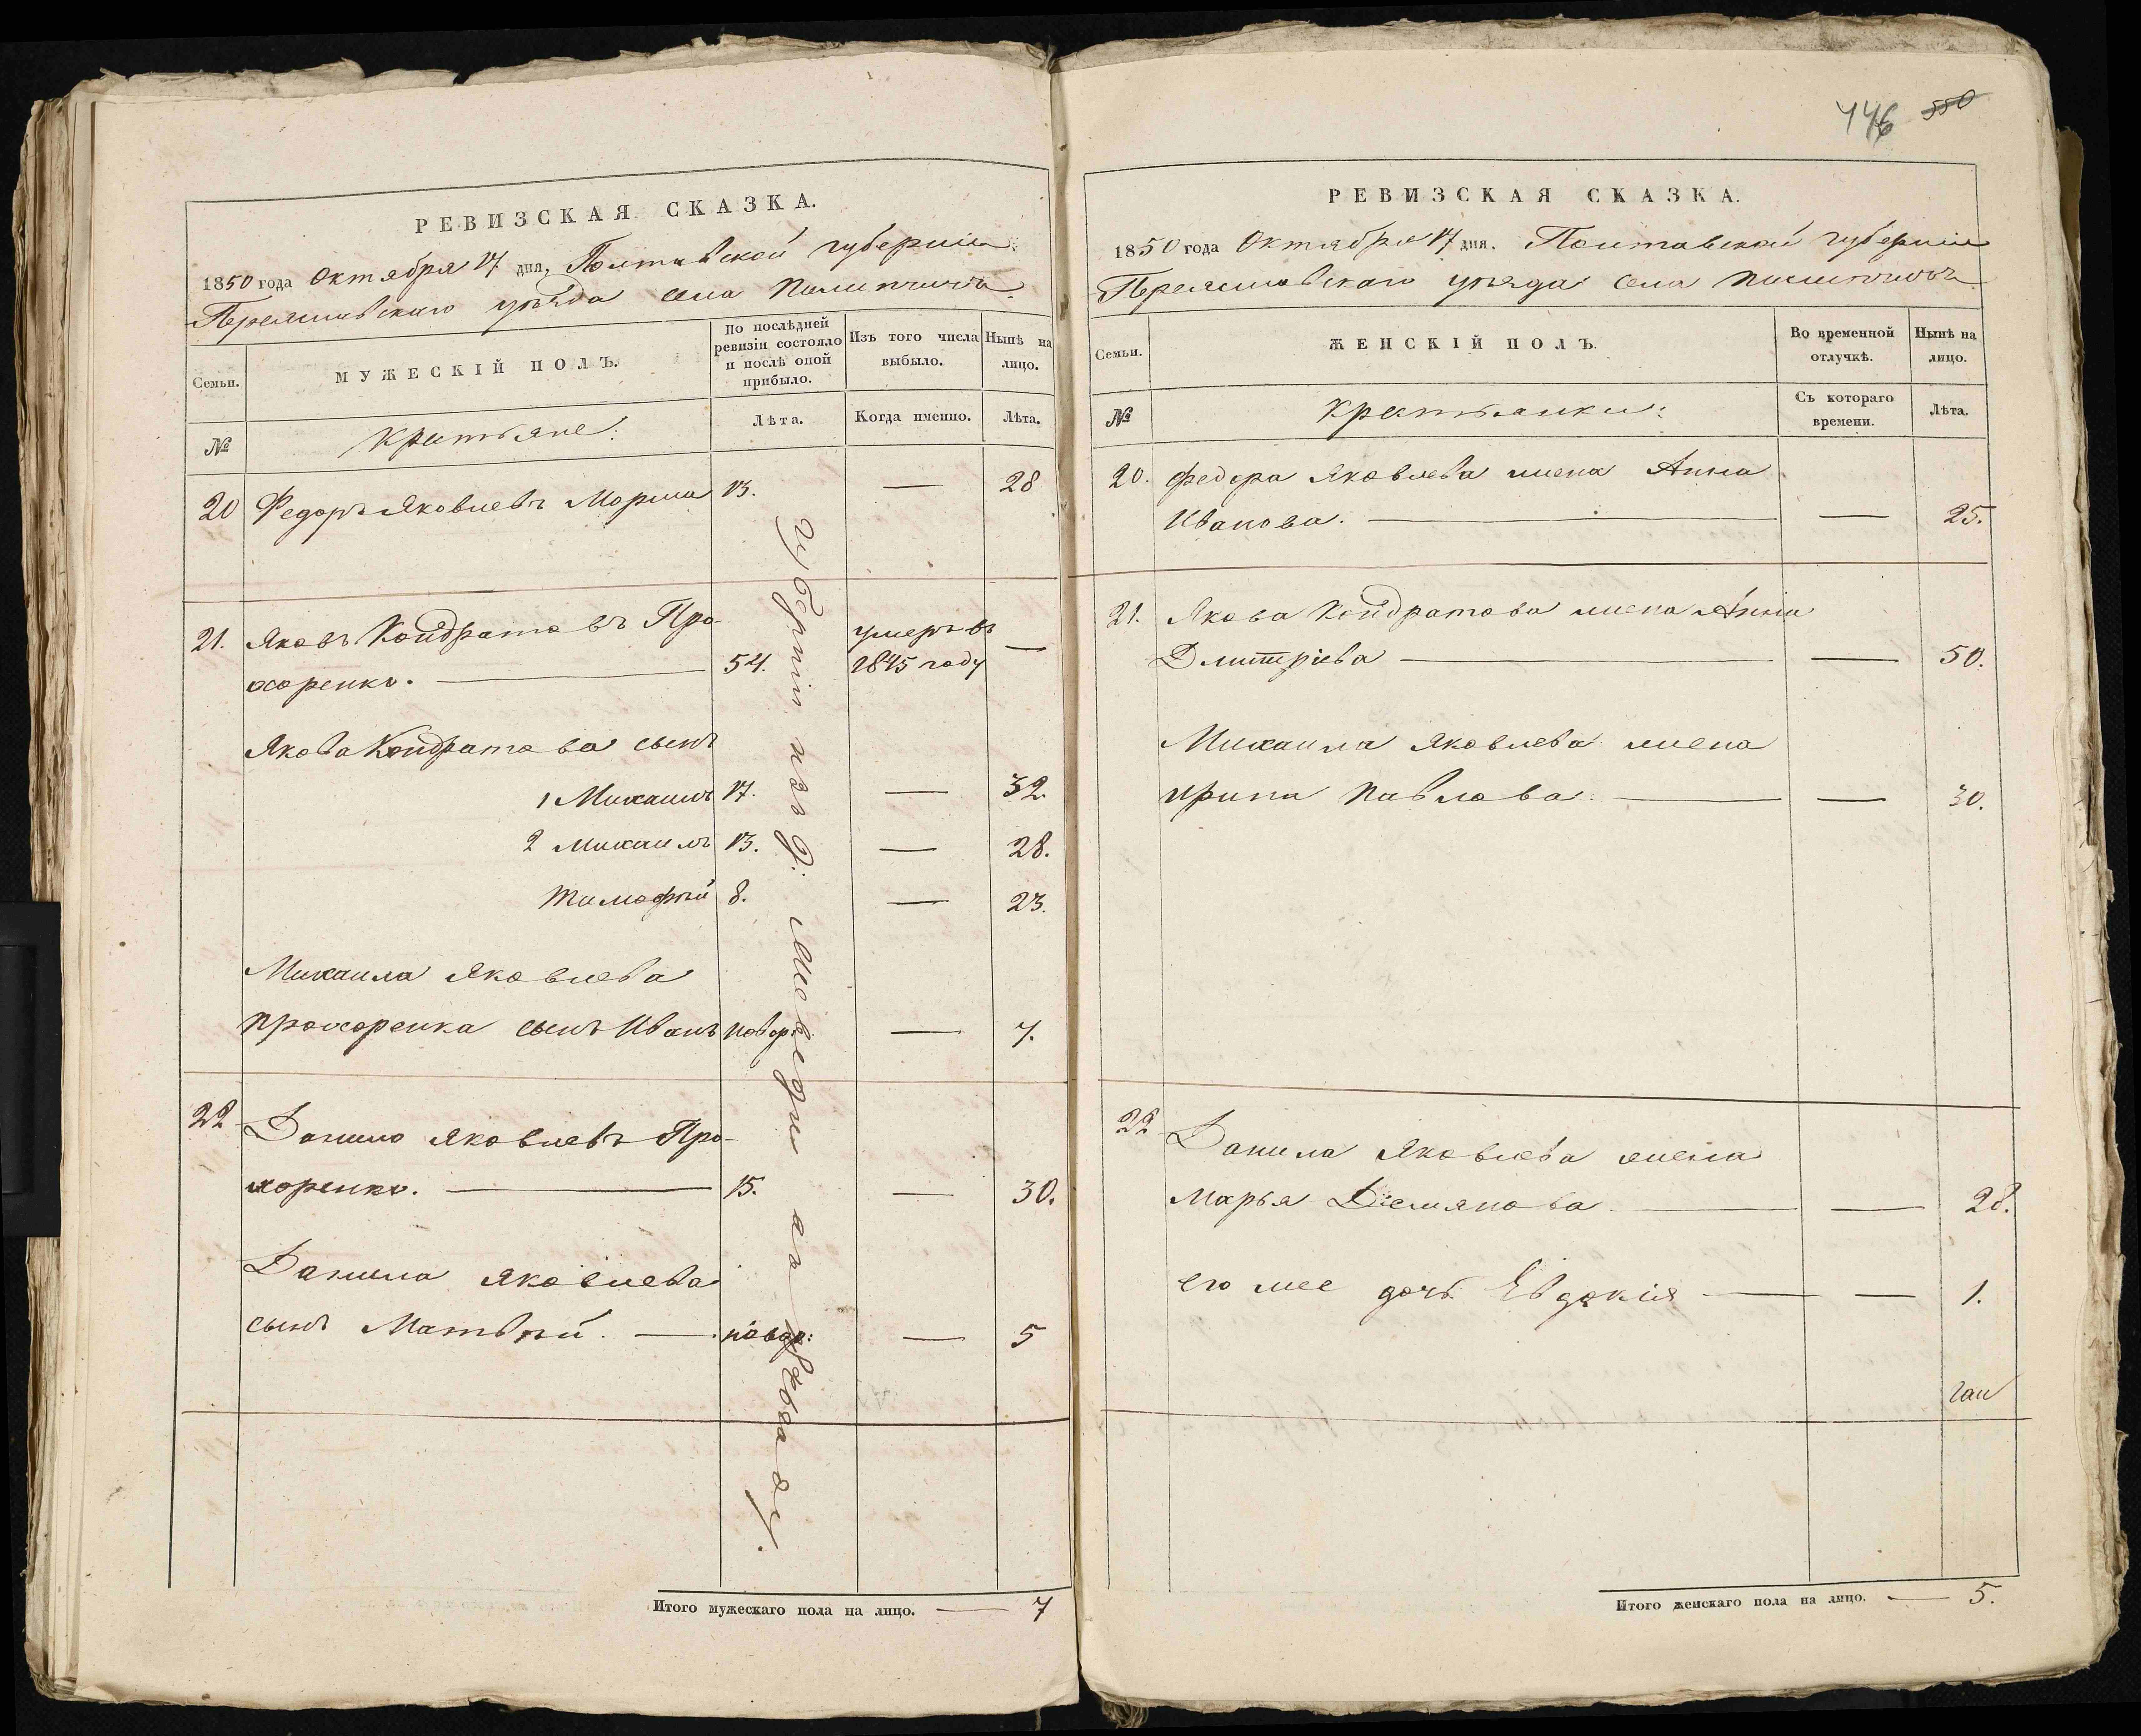 446 550
РЕВИЗСКАЯ СКАЗКА.
1850 года Октября 17 дня, Полтавской губернии
Переяславскаго уѣзда села Пилипчичь
Семьи.
МУЖЕСКІЙ ПОЛЪ.
По послѣдней ревизіи состояло и послѣ оной прибыло.
Изъ того числа выбыло.
Нынѣ на лицо.
№
Крестьяне:
Лѣта.
Когда именно.
Лѣта.
20 Федоръ Яковлевъ Мориш 13. — 28
21. Яковъ Кондратовъ Про- умеръ въ
хоренко. — 54. 1845 году —
Якова Кондратова сынъ
1 Михаилъ 17. — 32.
2 Михаилъ 13. — 28.
Тимофѣй 8. — 23.
Михаила Яковлева
Прохоренка сынъ Иванъ новор: — 7.
22 Данило Яковлевъ Про-
хоренко. — 15. — 30.
Данила Яковлева
сынъ Матвѣй. — новор: — 5
губерніи
Итого мужескаго пола на лицо. — 7
РЕВИЗСКАЯ СКАЗКА.
1850 года Октября 17 дня. Полтавской губерніи
Переяславскаго уѣзда села Пилипчичь
Семьи.
ЖЕНСКІЙ ПОЛЪ.
Во временной отлучкѣ.
Нынѣ на лицо.
№
Крестьянки:
Съ котораго времени.
Лѣта.
20. Федора Яковлева жена Анна
Иванова. — — 25.
21. Якова Кондратова жена Анна
Дмитріева — — 50.
Михаила Яковлева жена
Ирина Павлова. — — 30.
22 Данила Яковлева жена
Марья Демянова — — 28.
его же дочь Евдокія — — 1.
Итого женскаго пола на лицо. — 5.